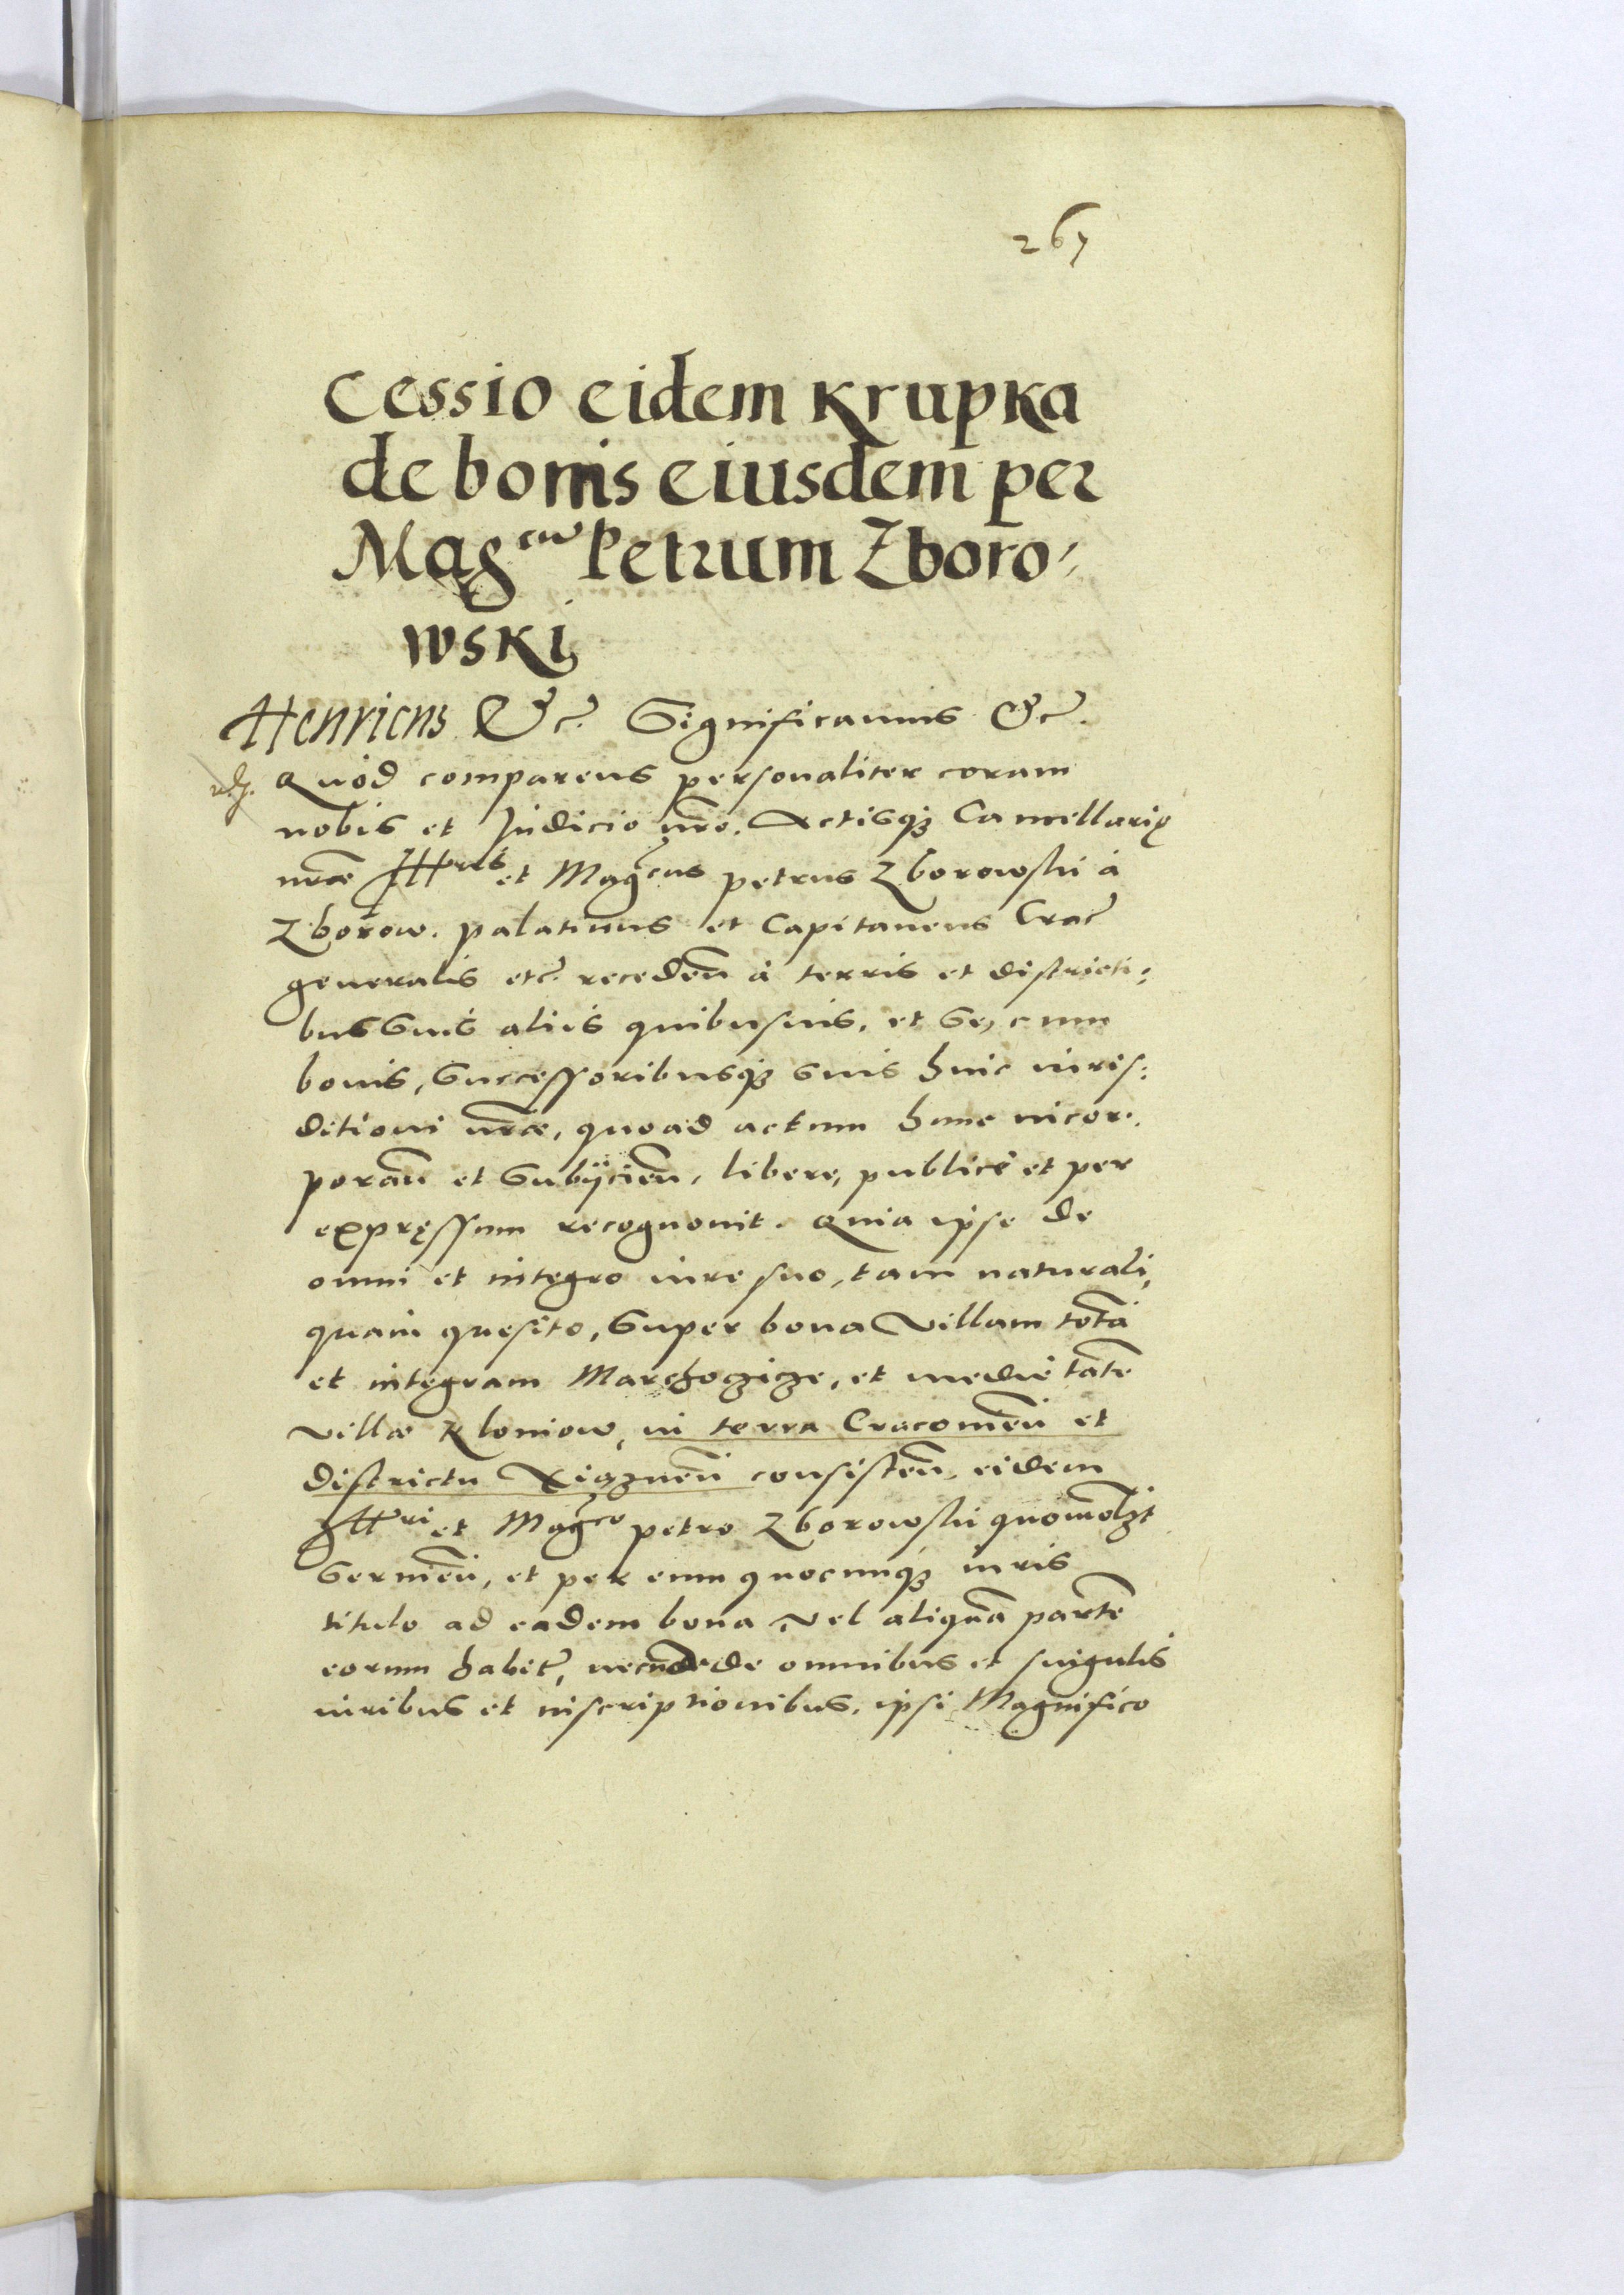 267
Cessio eidem Krupka
de bonis eiusdem per
Mag^cu Petrum Zboro-
wski
Henricus &c. Significamus &c.
Quòd comparens personaliter coram
nobis et Judicio nr̃o. Actisq; Cancellarię
nr̃æ Ill^ris et Mag^cus Petrus Zborowski à
Zborow. palatinus et Capitaneus Crac̃
generalis etc̃. receden̄ à terris et districti:
bus suis aliis quibusuis, et se, cum
bonis, Successoribusq; suis huic iuris:
ditioni nr̃æ, quoad actum hunc incor.
poran̄ et Subÿcien̄, libere, publicè et per
expręssum recognouit. Quia ipse de
omni et integro iure suo, tam naturali,
quam quesito, Super bona Villam totā
et integram Marchoczicze, et medietatē
villæ Kloniow, in terra Cracouien̄ et
districtu Xiąznen̄ consisten̄, eidem
Ill^ri et Mag^co Petro Zborowski quomolzt
Seruien̄, et per eum quocunq; iuris
titulo ad eadem bona vel aliquā partē
eorum habit̃, necnon de omnibus et singulis
iuribus et inscriptionibus, ipsi Magnifico